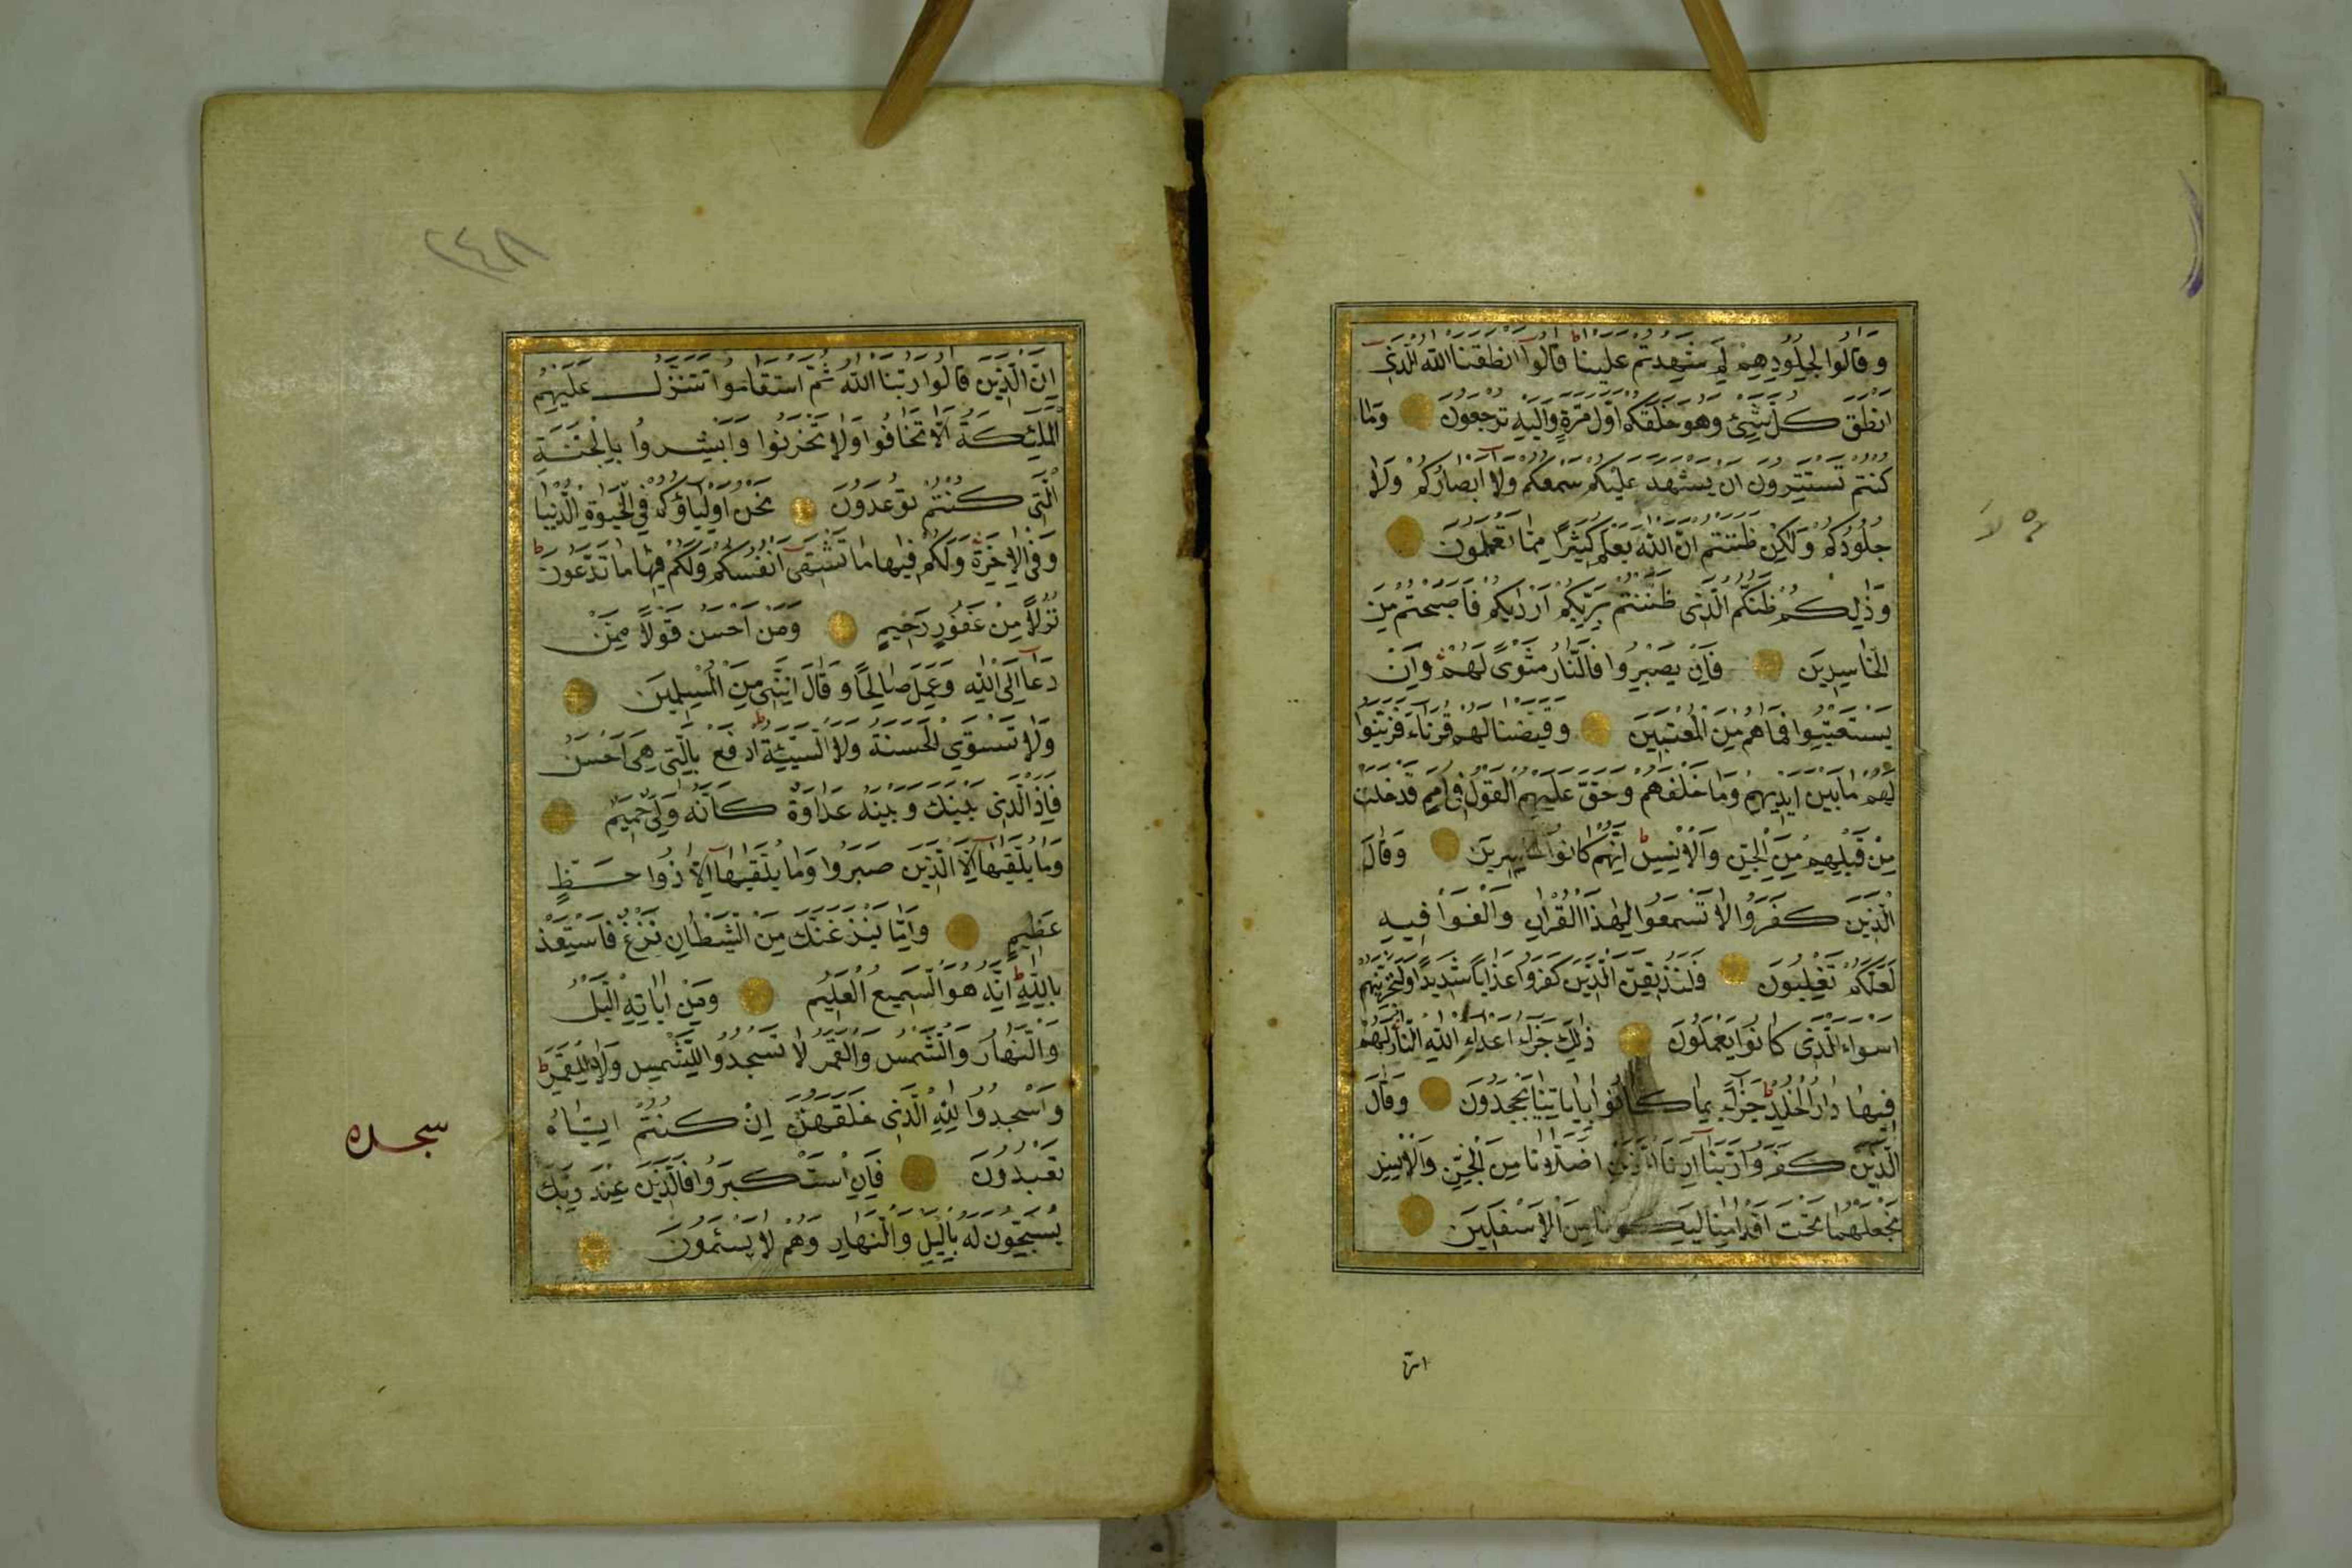 وَقَالُوا لِجُلُودِهِمْ لِمَ شَهِدتُّمْ عَلَيْنَا قَالُوا أَنطَقَنَا اللَّهُ الَّذِي
أَنطَقَ كُلَّ شَيْءٍ وَهُوَ خَلَقَكُمْ أَوَّلَ مَرَّةٍ وَإِلَيْهِ تُرْجَعُونَ وَمَا
كُنتُمْ تَسْتَتِرُونَ أَن يَشْهَدَ عَلَيْكُمْ سَمْعُكُمْ وَلَا أَبْصَارُكُمْ وَلَا
جُلُودُكُمْ وَلَكِن ظَنَنتُمْ أَنَّ اللَّهَ لَا يَعْلَمُ كَثِيرًا مِمَّا تَعْمَلُونَ
وَذَلِكُمْ ظَنُّكُمُ الَّذِي ظَنَنتُم بِرَبِّكُمْ أَرْدَيكُمْ فَأَصْبَحْتُم مِنَ
الْخَاسِرِينَ فَإِن يَصْبِرُوا فَالنَّارُ مَثْوًى لَهُمْ وَإِن
يَسْتَعْتِبُوا فَمَا هُم مِنَ الْمُعْتَبِينَ وَقَيَّضْنَا لَهُمْ قُرَنَاءَ فَزَيَّنُوا
لَهُم مَا بَيْنَ أَيْدِيهِمْ وَمَا خَلْفَهُمْ وَحَقَّ عَلَيْهِمُ الْقَوْلُ فِي أُمَمٍ قَدْ خَلَتْ
مِن قَبْلِهِم مِنَ الْجِنِّ وَالْإِنسِ إِنَّهُمْ كَانُوا خَاسِرِينَ وَقَالَ
الَّذِينَ كَفَرُوا لَا تَسْمَعُوا لِهَذَا الْقُرْآنِ وَالْغَوْا فِيهِ
لَعَلَّكُمْ تَغْلِبُونَ فَلَنُذِيقَنَّ الَّذِينَ كَفَرُوا عَذَابًا شَدِيدًا وَلَنَجْزِيَنَّهُمْ
أَسْوَأَ الَّذِي كَانُوا يَعْمَلُونَ ذَلِكَ جَزَاءُ أَعْدَاءِ اللَّهِ النَّارُ لَهُمْ
فِيهَا دَارُ الْخُلْدِ جَزَاءً بِمَا كَانُوا بِآيَاتِنَا يَجْحَدُونَ وَقَالَ
الَّذِينَ كَفَرُوا رَبَّنَا أَرِنَا الَّذَيْنِ أَضَلَّانَا مِنَ الْجِنِّ وَالْإِنسِ
نَجْعَلْهُمَا تَحْتَ أَقْدَامِنَا لِيَكُونَا مِنَ الْأَسْفَلِينَ
انّ
٢٤٨
إِنَّ الَّذِينَ قَالُوا رَبُّنَا اللَّهُ ثُمَّ اسْتَقَامُوا تَتَنَزَّلُ عَلَيْهِمُ
الْمَلَئِكَةُ أَلَّا تَخَافُوا وَلَا تَحْزَنُوا وَأَبْشِرُوا بِالْجَنَّةِ
الَّتِي كُنتُمْ تُوعَدُونَ نَحْنُ أَوْلِيَاؤُكُمْ فِي الْحَيَوةِ الدُّنْيَا
وَفِي الْآخِرَةِ وَلَكُمْ فِيهَا مَا تَشْتَهِي أَنفُسُكُمْ وَلَكُمْ فِيهَا مَا تَدَّعُونَ
نُزُلًا مِنْ غَفُورٍ رَحِيمٍ وَمَنْ أَحْسَنُ قَوْلًا مِمَّن
دَعَا إِلَى اللَّهِ وَعَمِلَ صَالِحًا وَقَالَ إِنَّنِي مِنَ الْمُسْلِمِينَ
وَلَا تَسْتَوِي الْحَسَنَةُ وَلَا السَّيِّئَةُ ادْفَعْ بِالَّتِي هِيَ أَحْسَنُ
فَإِذَا الَّذِي بَيْنَكَ وَبَيْنَهُ عَدَاوَةٌ كَأَنَّهُ وَلِيٌّ حَمِيمٌ
وَمَا يُلَقَّيهَا إِلَّا الَّذِينَ صَبَرُوا وَمَا يُلَقَّيهَا إِلَّا ذُو حَظٍّ
عَظِيمٍ وَإِمَّا يَنزَغَنَّكَ مِنَ الشَّيْطَانِ نَزْغٌ فَاسْتَعِذْ
بِاللَّهِ إِنَّهُ هُوَ السَّمِيعُ الْعَلِيمُ وَمِنْ آيَاتِهِ اللَّيْلُ
وَالنَّهَارُ وَالشَّمْسُ وَالْقَمَرُ لَا تَسْجُدُوا لِلشَّمْسِ وَلَا لِلْقَمَرِ
وَاسْجُدُوا لِلَّهِ الَّذِي خَلَقَهُنَّ إِن كُنتُمْ إِيَّاهُ
سجده
تَعْبُدُونَ فَإِنِ اسْتَكْبَرُوا فَالَّذِينَ عِندَ رَبِّكَ
يُسَبِّحُونَ لَهُ بِاللَّيْلِ وَالنَّهَارِ وَهُمْ لَا يَسْئَمُونَ